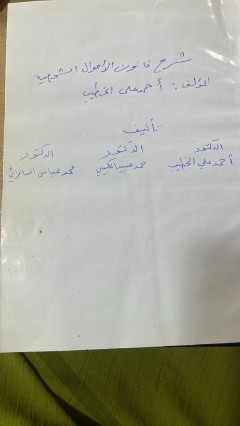 شرح قانون الأحوال الشخصية
المؤلف: أحمد علي الخطيب
تأليف
الدكتور الدكتور الدكتور
أحمد علي الخطيب حمد عبيد الكبيسي محمد عباس السامرائي